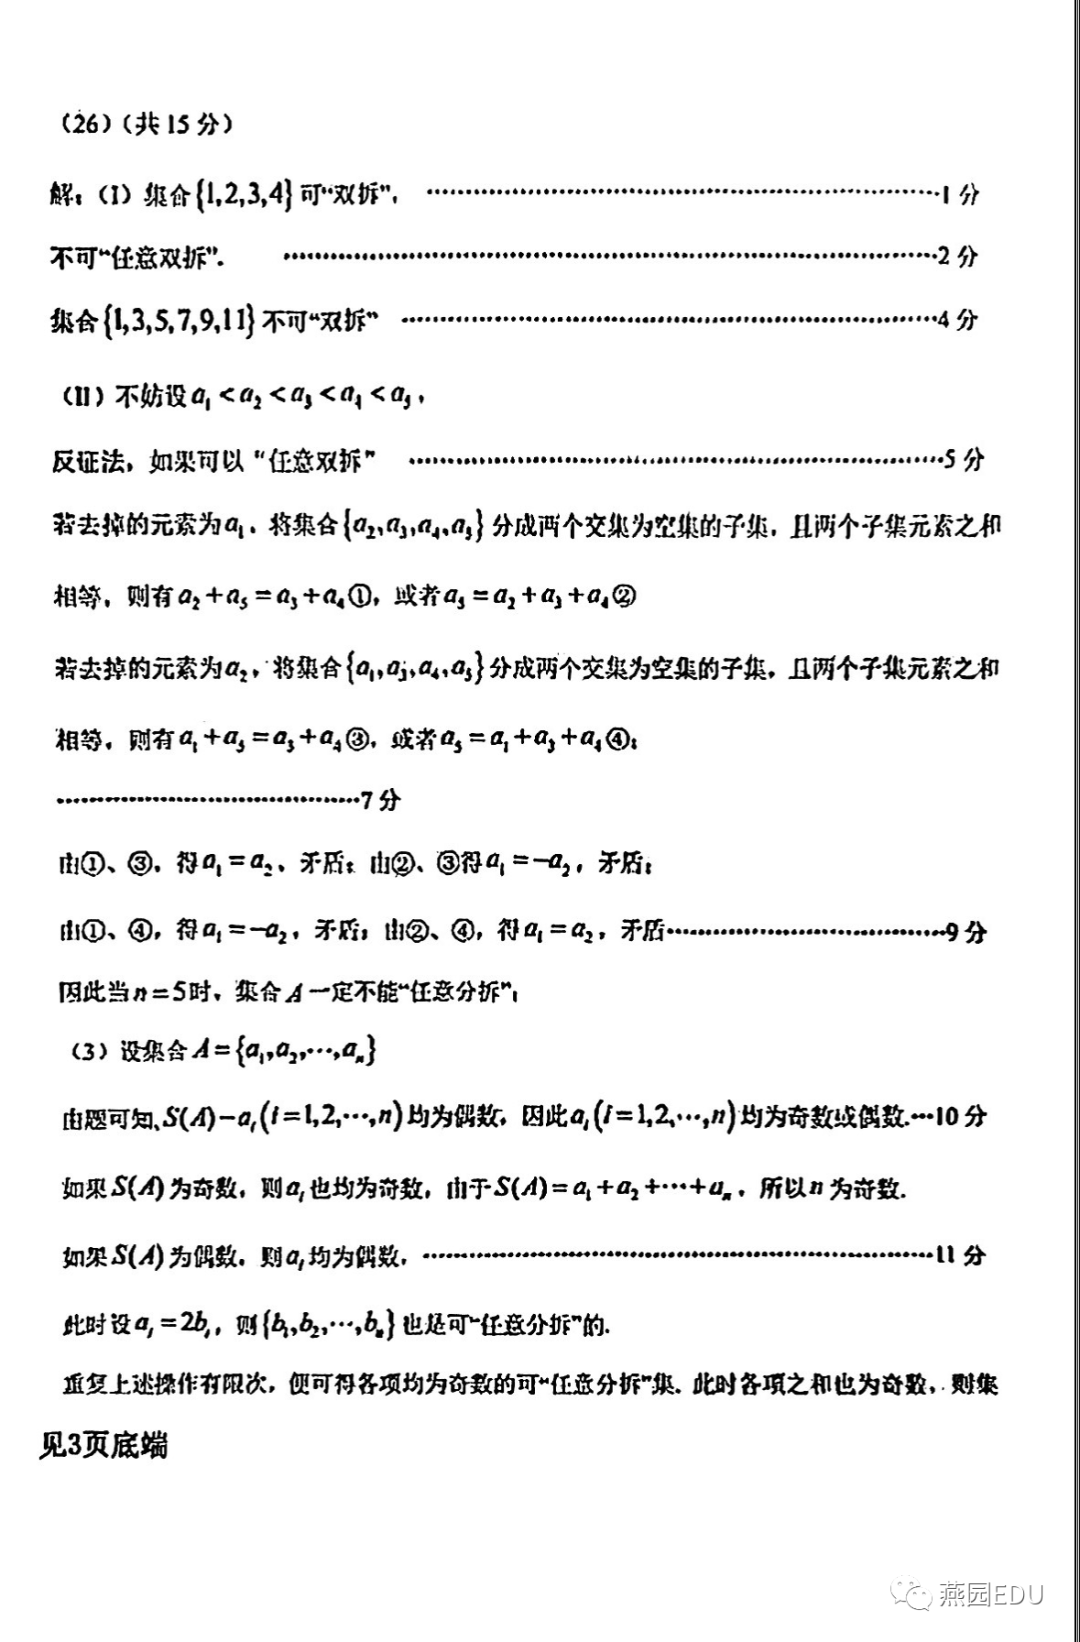 （26）（共 15 分）
解：（I）集合{1,2,3,4}可“双拆”， ……1 分
不可“任意双拆”． ……2 分
集合{1,3,5,7,9,11}不可“双拆” ……4 分
（II）不妨设a₁<a₂<a₃<a₄<a₅，
反证法，如果可以“任意双拆” ……5 分
若去掉的元素为a₁，将集合{a₂,a₃,a₄,a₅}分成两个交集为空集的子集，且两个子集元素之和
相等，则有a₂+a₅=a₃+a₄①，或者a₅=a₂+a₃+a₄②
若去掉的元素为a₂，将集合{a₁,a₃,a₄,a₅}分成两个交集为空集的子集，且两个子集元素之和
相等，则有a₁+a₅=a₃+a₄③，或者a₅=a₁+a₃+a₄④；
……7 分
由①、③，得a₁=a₂，矛盾；由②、③得a₁=-a₂，矛盾；
由①、④，得a₁=-a₂，矛盾；由②、④，得a₁=a₂，矛盾……9 分
因此当n=5时，集合A一定不能“任意分拆”；
（3）设集合A={a₁,a₂,…,aₙ}
由题可知，S(A)-aᵢ(i=1,2,…,n)均为偶数，因此aᵢ(i=1,2,…,n)均为奇数或偶数.…10 分
如果S(A)为奇数，则aᵢ也均为奇数，由于S(A)=a₁+a₂+…+aₙ，所以n为奇数.
如果S(A)为偶数，则aᵢ均为偶数，……11 分
此时设aᵢ=2bᵢ，则{b₁,b₂,…,bₙ}也是可“任意分拆”的.
重复上述操作有限次，便可得各项均为奇数的可“任意分拆”集．此时各项之和也为奇数，则集
见3页底端
燕园EDU